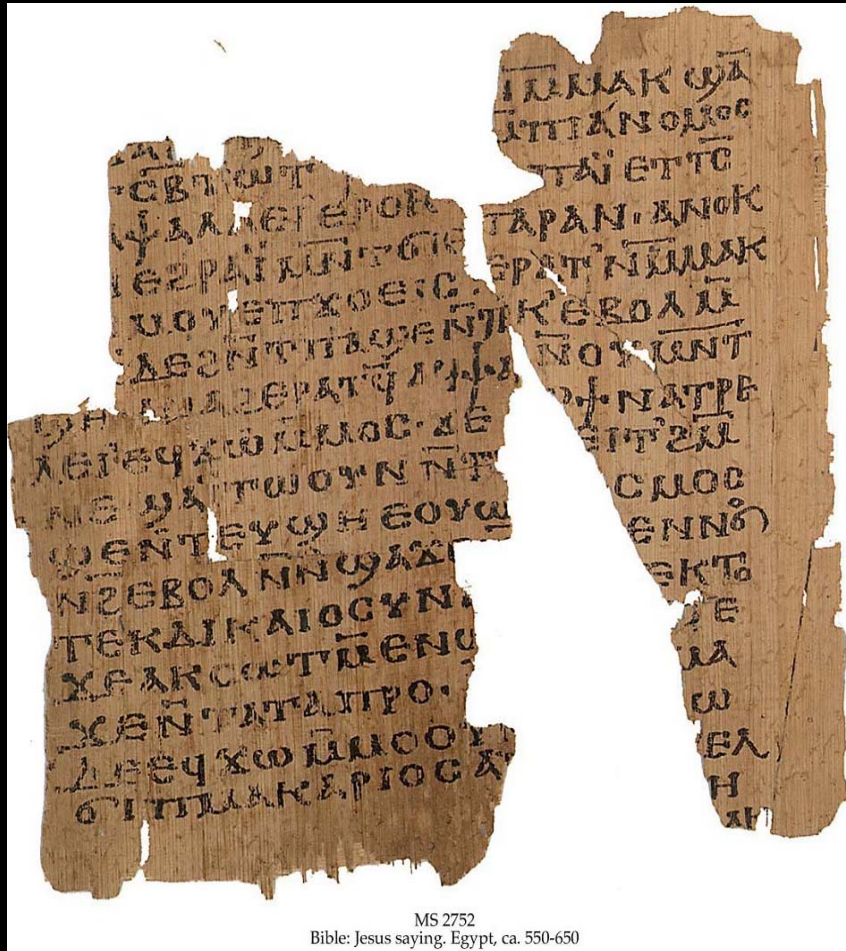 ⲥ̄ⲃⲧⲱⲧ
ⲯⲁⲗⲗⲉⲓⲉⲣⲟⲕ
ⲉϩⲣⲁⲓ̈ⲙⲛ̄ⲧϭⲓⲉ
ⲙⲟⲩⲉⲡϫⲟⲉⲓⲥ
ⲇⲉϩⲛ̄ⲧⲡⲁϣⲉⲛ̄ⲧⲉ
ⲁϩⲉⲣⲁⲧϥ̄ⲁϥⲯⲁ
ⲗⲉⲓⲉϥϫⲱⲙ̄ⲙⲟⲥ·ϫⲉ
ⲛⲉϣⲁⲓ̈ⲧⲱⲟⲩⲛⲛ̄ⲧⲡ
ϣⲉⲛ̄ⲧⲉⲩϣⲏⲉⲟⲩⲱ
ⲛϩ̄ⲉⲃⲟⲗⲛ̄ⲛ̄ϣⲁϫⲉ
ⲧⲉⲕⲇⲓⲕⲁⲓⲟⲥⲩⲛ
ϫⲉⲁⲕⲥⲱⲧⲙ̄ⲉⲛϣ
ϫⲉⲛ̄ⲧⲁⲧⲁⲡⲣⲟ·
ⲇⲉⲉϥϫⲱⲙ̄ⲙⲟⲟⲩ
ϭⲓⲡⲙⲁⲕⲁⲣⲓⲟⲥⲁ
ⲙ̄ⲙⲁⲕϣⲁ̄
ⲙ̄ⲡⲓⲁⲛⲟⲙⲟⲥ
ⲡⲁⲓ̈ⲉⲧⲧⲥ̄
ⲡⲁⲣⲁⲛ·ⲁⲛⲟⲕ
ⲉⲣⲁⲧ̓ⲛⲙ̄ⲙⲁⲕ
ⲕ̓ⲉⲃⲟⲗⲙ̄
ⲛ̄ⲟⲩⲙⲛ̄ⲧ
ⲛⲁⲧⲣⲉ
ⲉⲓⲧ̓ϩⲙ̄
ⲥⲙⲟⲥ
ⲉⲛⲛⲟϭ
ⲉⲕⲧⲟ
ϣⲉ
ⲙⲁ
ⲱ
ⲉⲗ
ⲏ
MS 2752
Bible: Jesus saying. Egypt, ca. 550-650